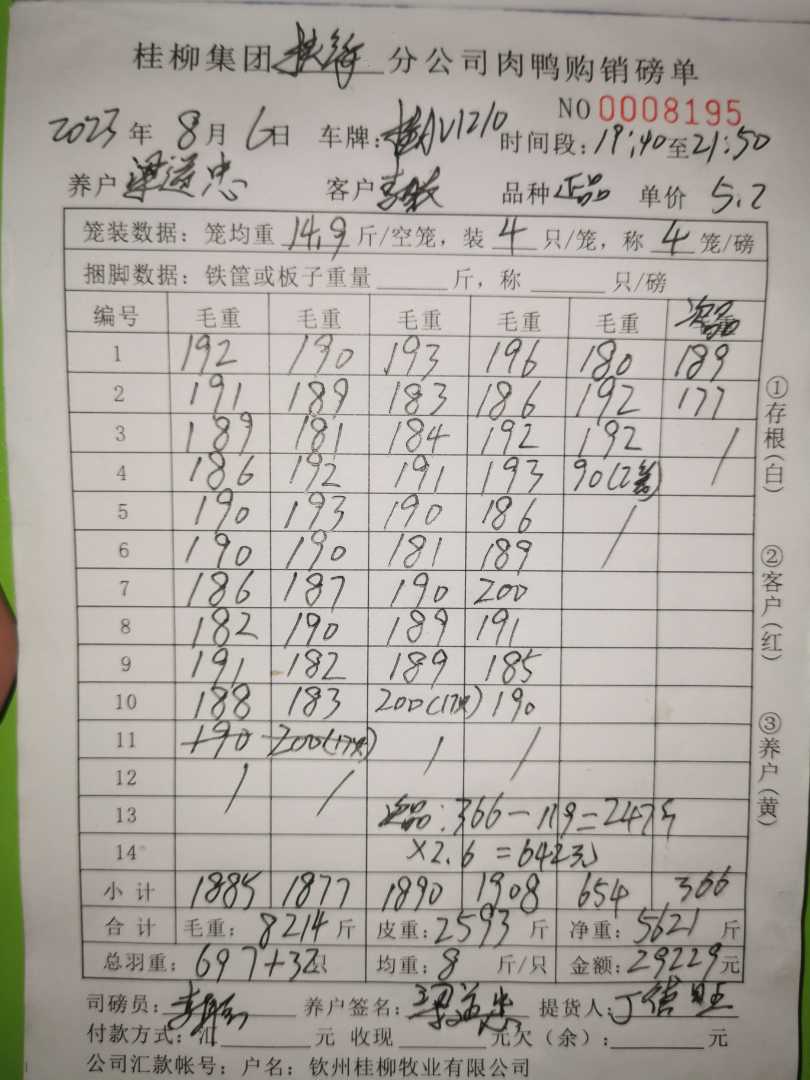 桂柳集团 扶绥 分公司肉鸭购销磅单
NO 0008195
2023年 8月 6日 车牌: 桂AV1210 时间段: 19:40至21:50
养户 梁道忠 客户 李敏 品种 正品 单价 5.2
笼装数据: 笼均重 14.9 斤/空笼, 装 4 只/笼, 称 4 笼/磅
捆脚数据: 铁筐或板子重量 斤, 称 只/磅
编号 毛重 毛重 毛重 毛重 毛重 次品
1 192 190 193 196 180 189
2 191 189 183 186 192 177
3 189 181 184 192 192 /
4 186 192 191 193 90(2笼)
5 190 193 190 186 /
6 190 190 181 189
7 186 187 190 200
8 182 190 189 191
9 191 182 189 185
10 188 183 200(17只) 190
11 190 200(17只) / /
12 / /
13 次品: 366-119=247斤
14 ×2.6=642元
小计 1885 1877 1890 1908 654 366
合计 毛重: 8214 斤 皮重: 2593 斤 净重: 5621 斤
总羽重: 697+32只 均重: 8 斤/只 金额: 29229元
司磅员: 养户签名: 梁道忠 提货人:
付款方式: 汇 元 收现 元欠(余): 元
公司汇款帐号: 户名: 钦州桂柳牧业有限公司
①存根(白)
②客户(红)
③养户(黄)